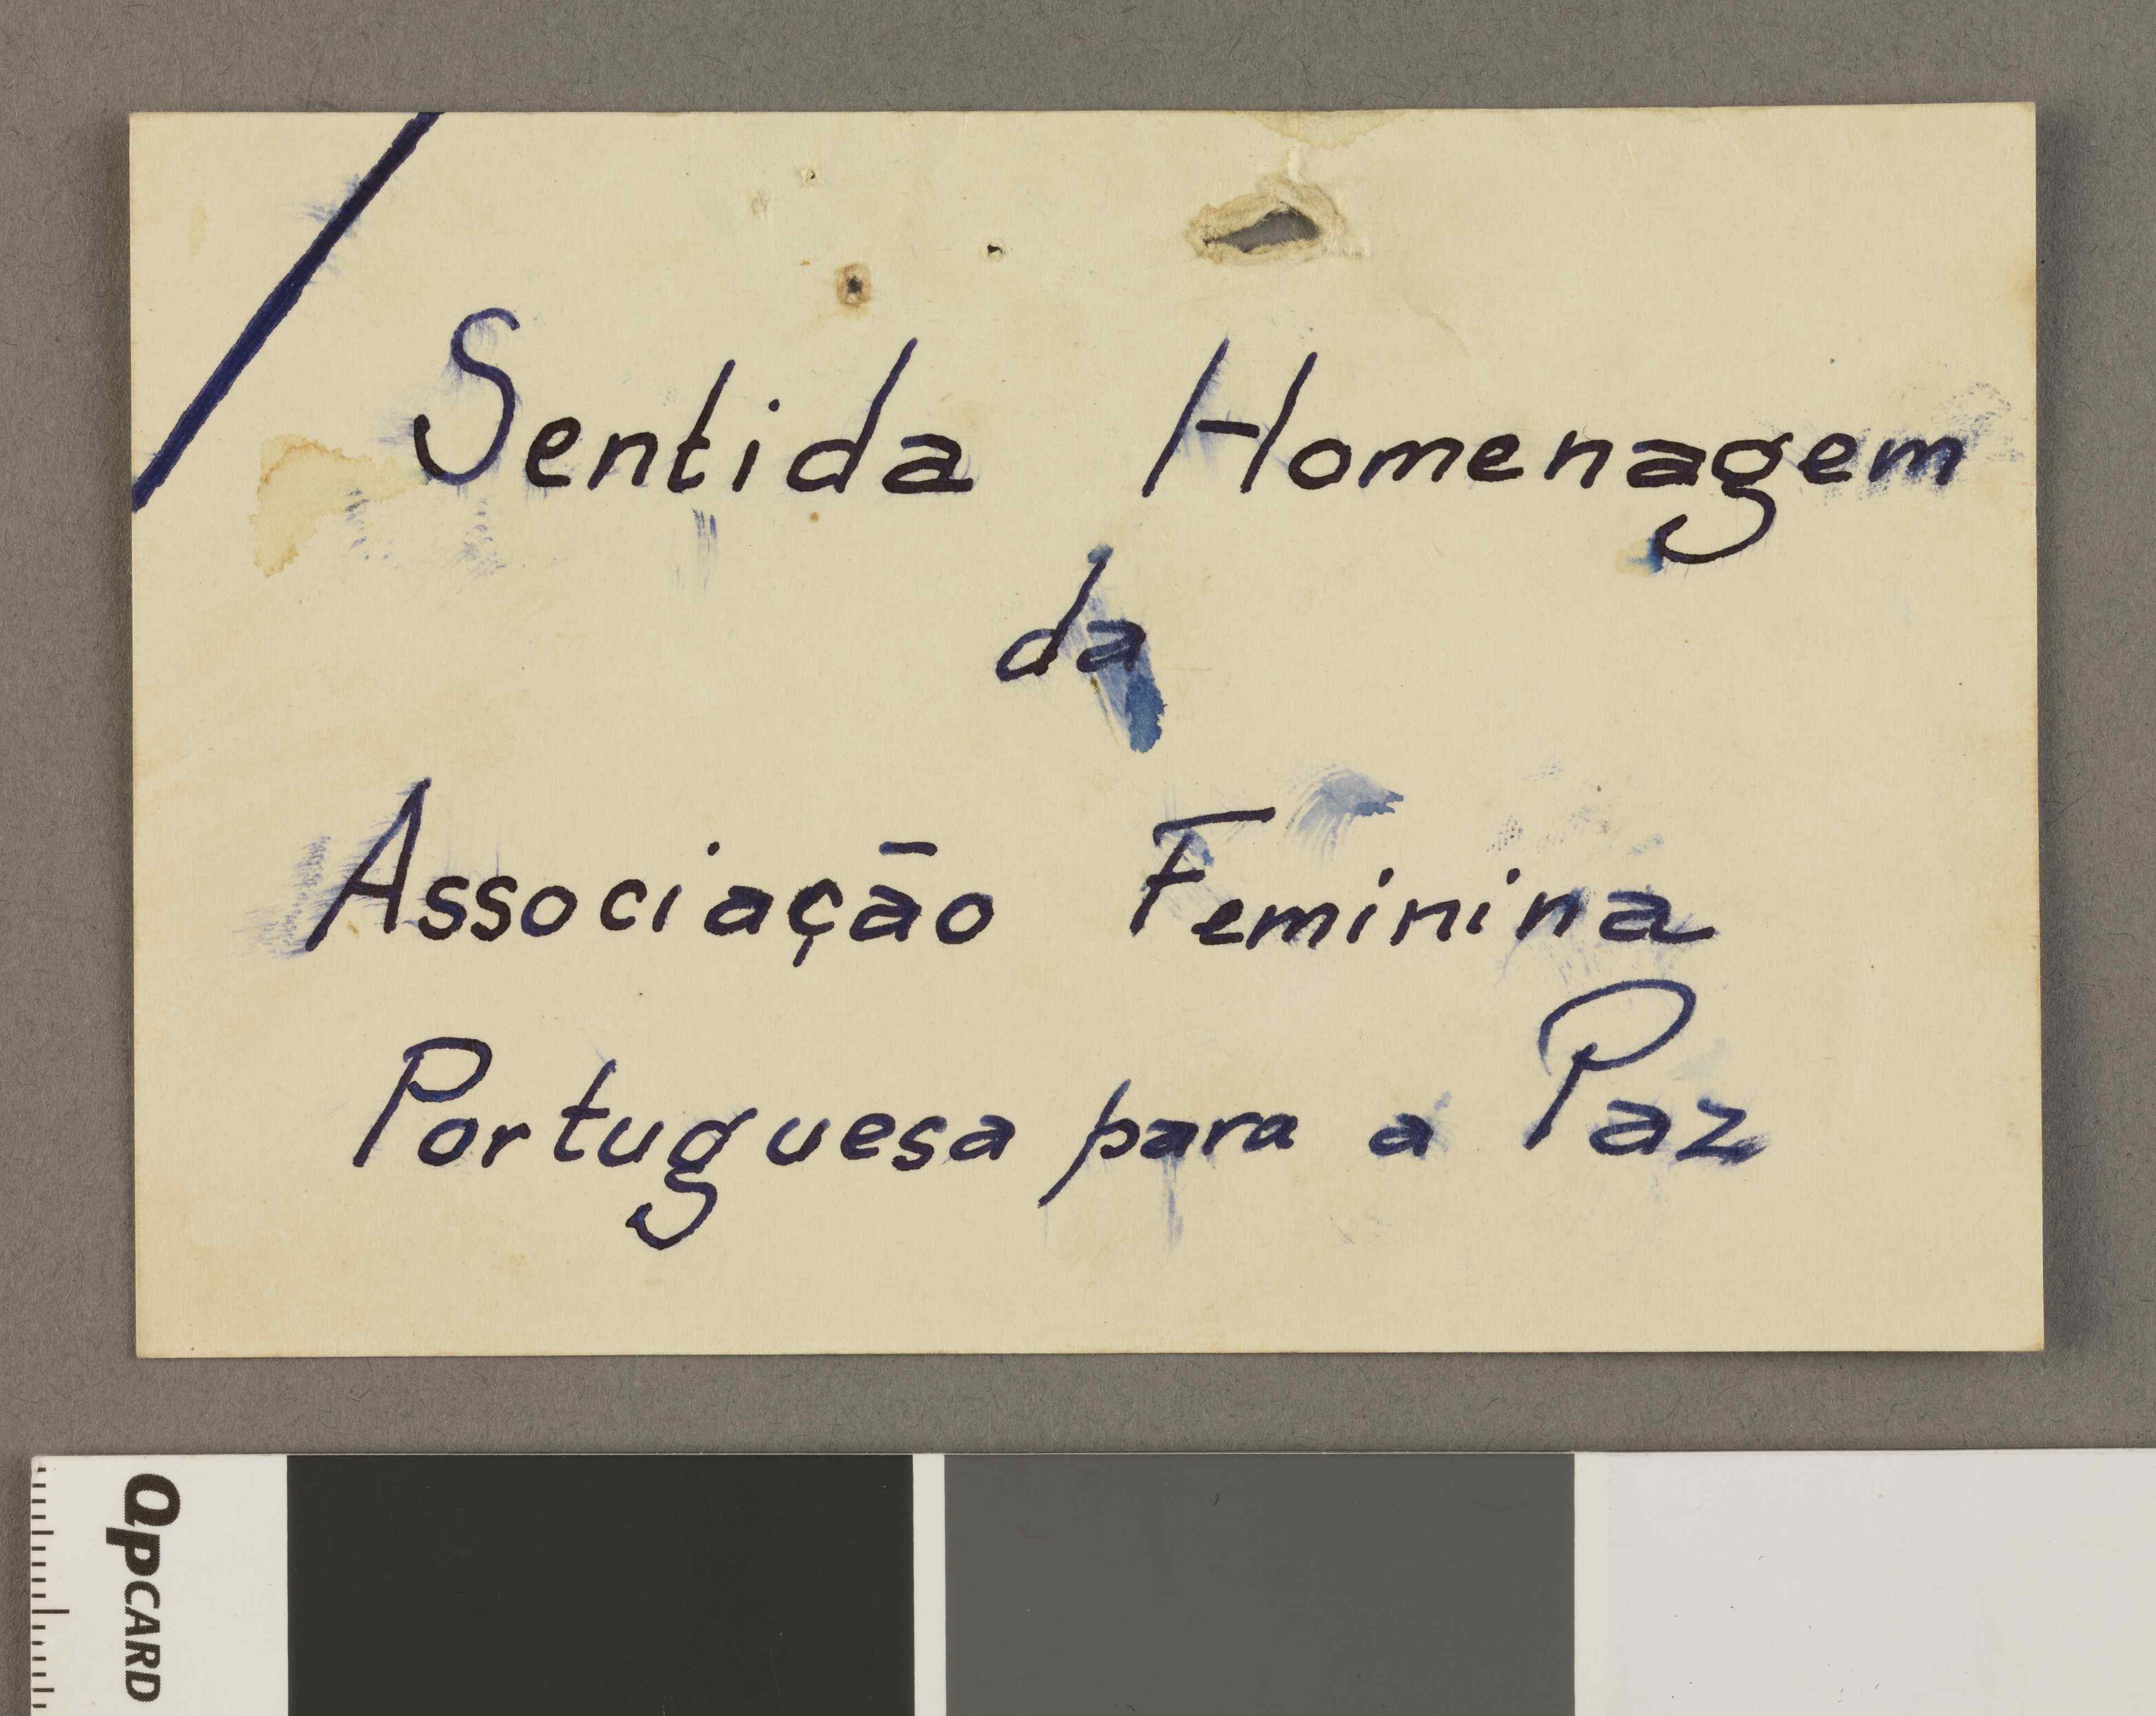 Sentida Homenagem
da
Associação Feminina
Portuguesa para a Paz
QPCARD